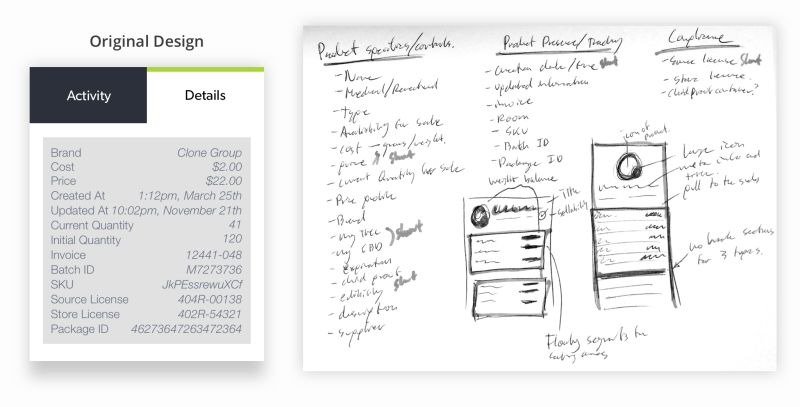 Original Design
Activity
Details
Brand Clone Group
Cost $2.00
Price $22.00
Created At 1:12pm, March 25th
Updated At 10:02pm, November 21th
Current Quantity 41
Initial Quantity 120
Invoice 12441-048
Batch ID M7273736
SKU JkPEssrewuXCf
Source License 404R-00138
Store License 402R-54321
Package ID 46273647263472364
Product specifics/controls.
- Name
- Medical/Recreational
- Type
- Availability for sale
- Cost → gross/weight.
- price short
- current Quantity for sale
- Price profile
- Brand
- mg THC
- mg CBD short
- Expiration
- child proof
- edibility short
- description
- supplier
Product Presence/Tracking
- Creation date/time short
- updated information
- invoice
- Room
- SKU
- Batch ID
- Package ID
weight balance
Title
sellability
Floating segments for
Compliance
- Source license short
- Store license.
- Child Proof container?
icon of product.
Large icon
meta info and
pull to the sides
no break sections
for 3 types.